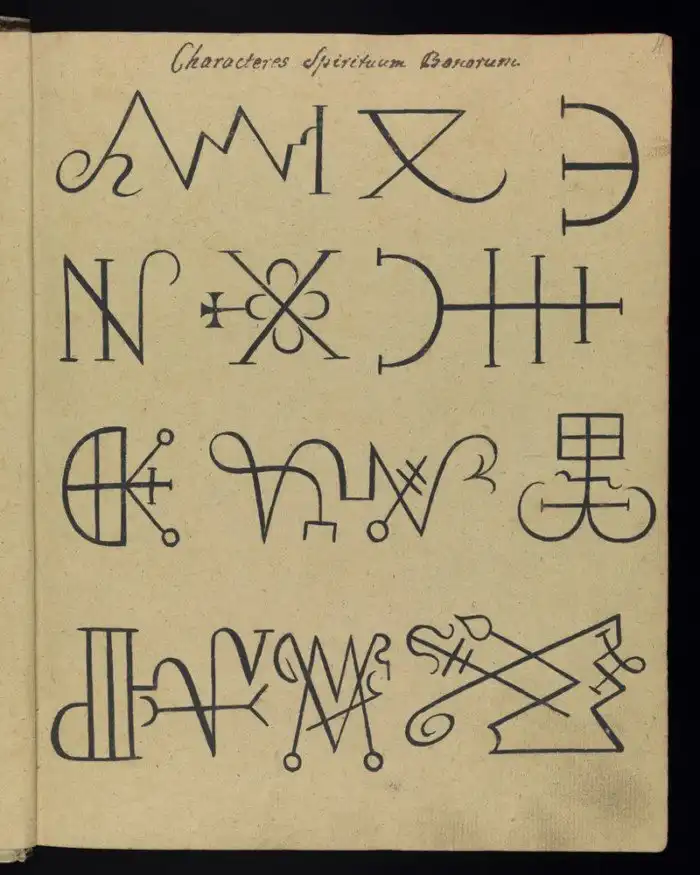 Characteres Spirituum Bonorum